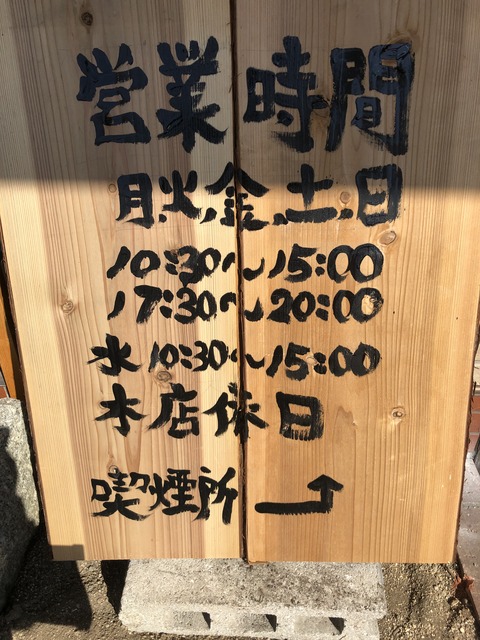 営業時間
月.火.金.土.日
10:30〜15:00
17:30〜20:00
水 10:30〜15:00
木 店休日
喫煙所